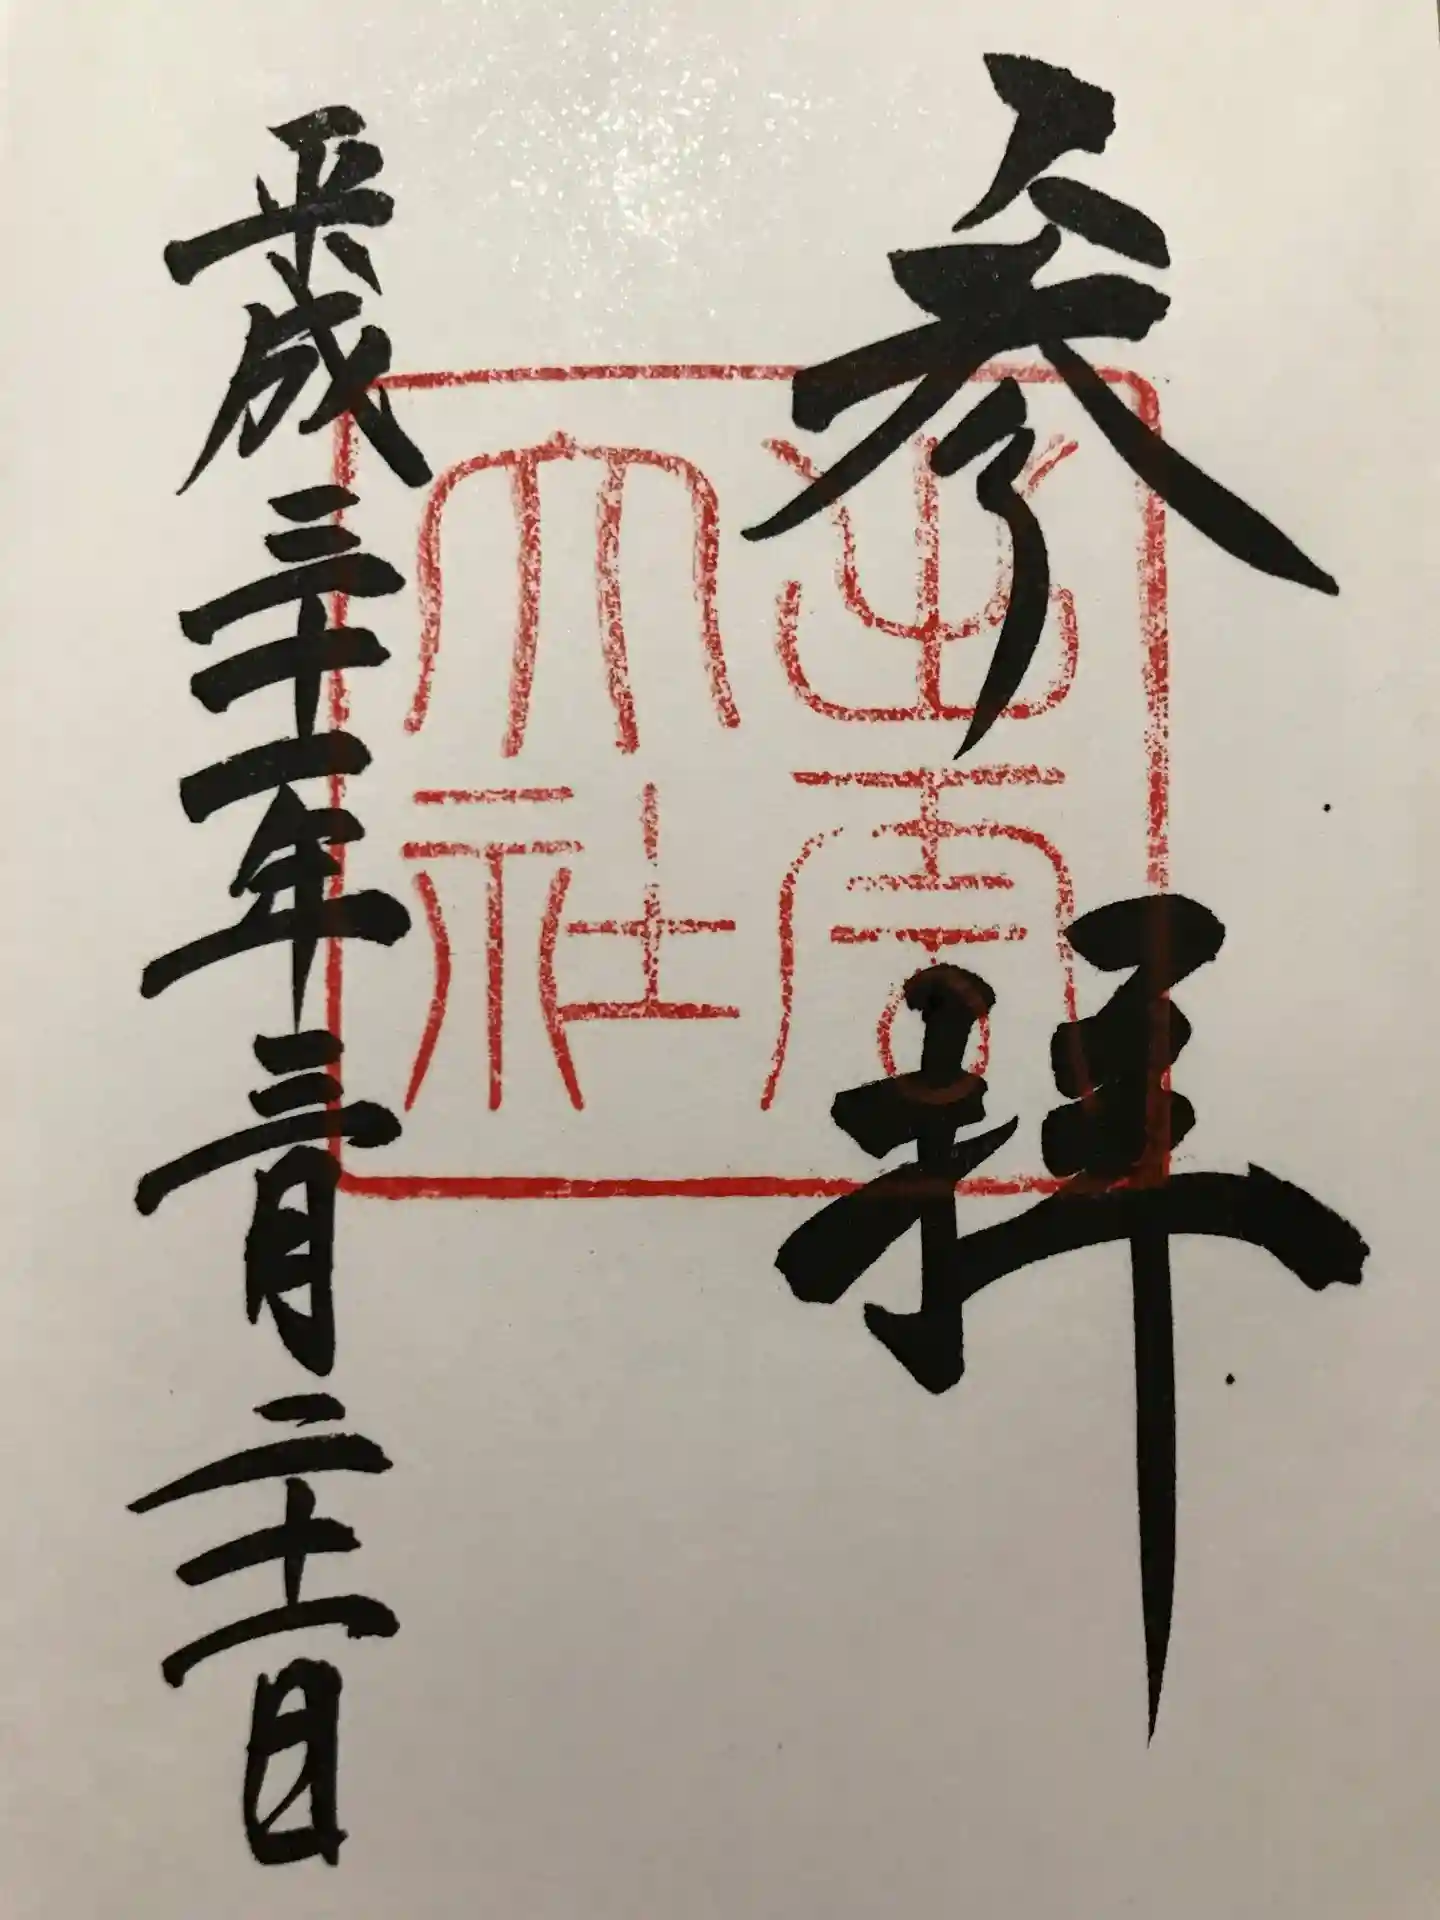 参拝
出雲
大社
平成三十一年三月二十一日